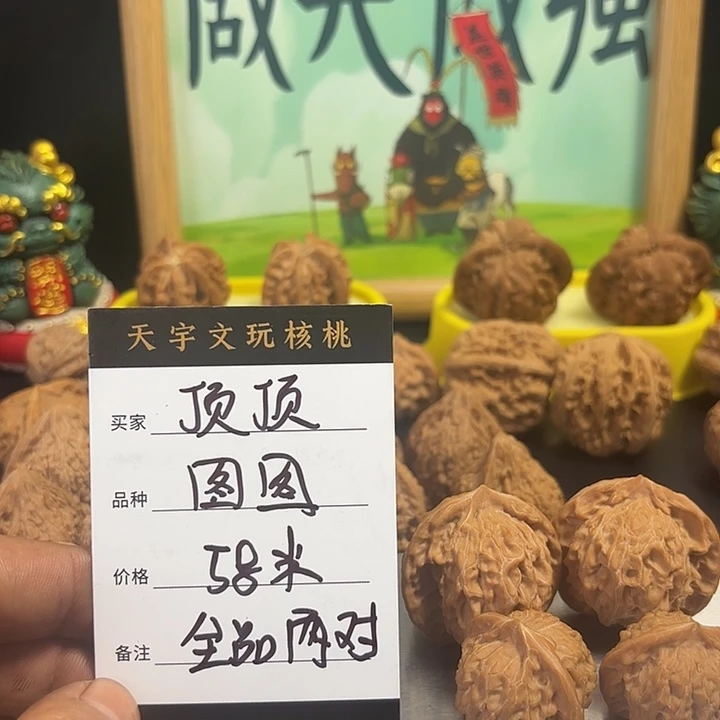 做大做强
盖世英雄
天宇文玩核桃
买家 顶顶
品种 图图
价格 58米
备注 全品两对